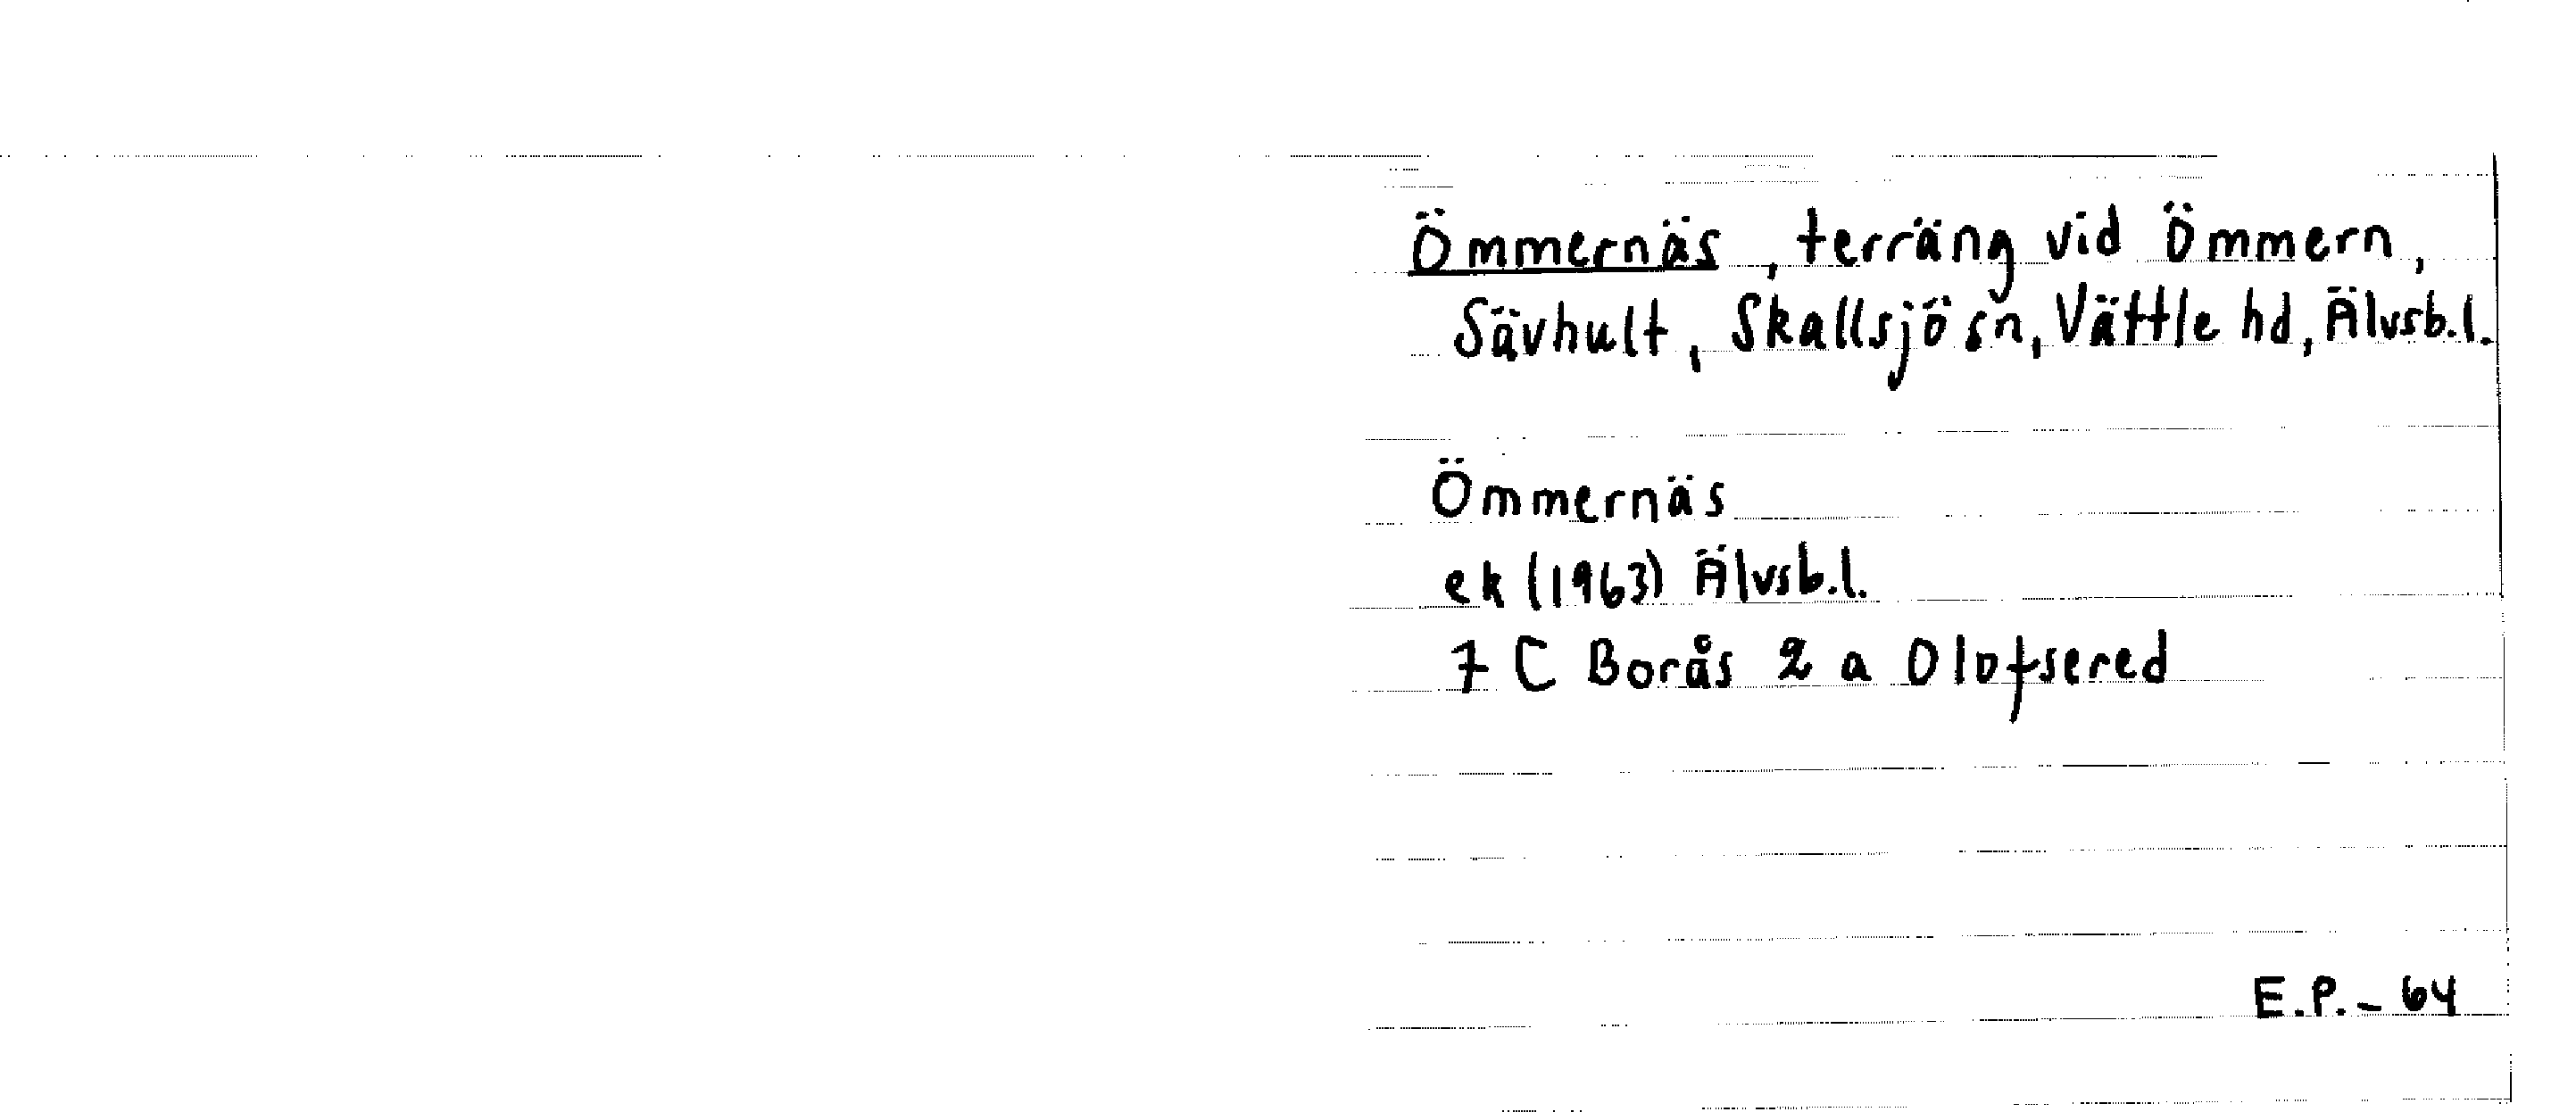 Ömmernäs, terräng vid Ömmern,
Sävhult, Skallsjö sn, Vättle hd, Älvsb.l.
Ömmernäs
ek (1963) Älvsb.l.
7 C Borås 2 a Olofsered
E.P. - 64